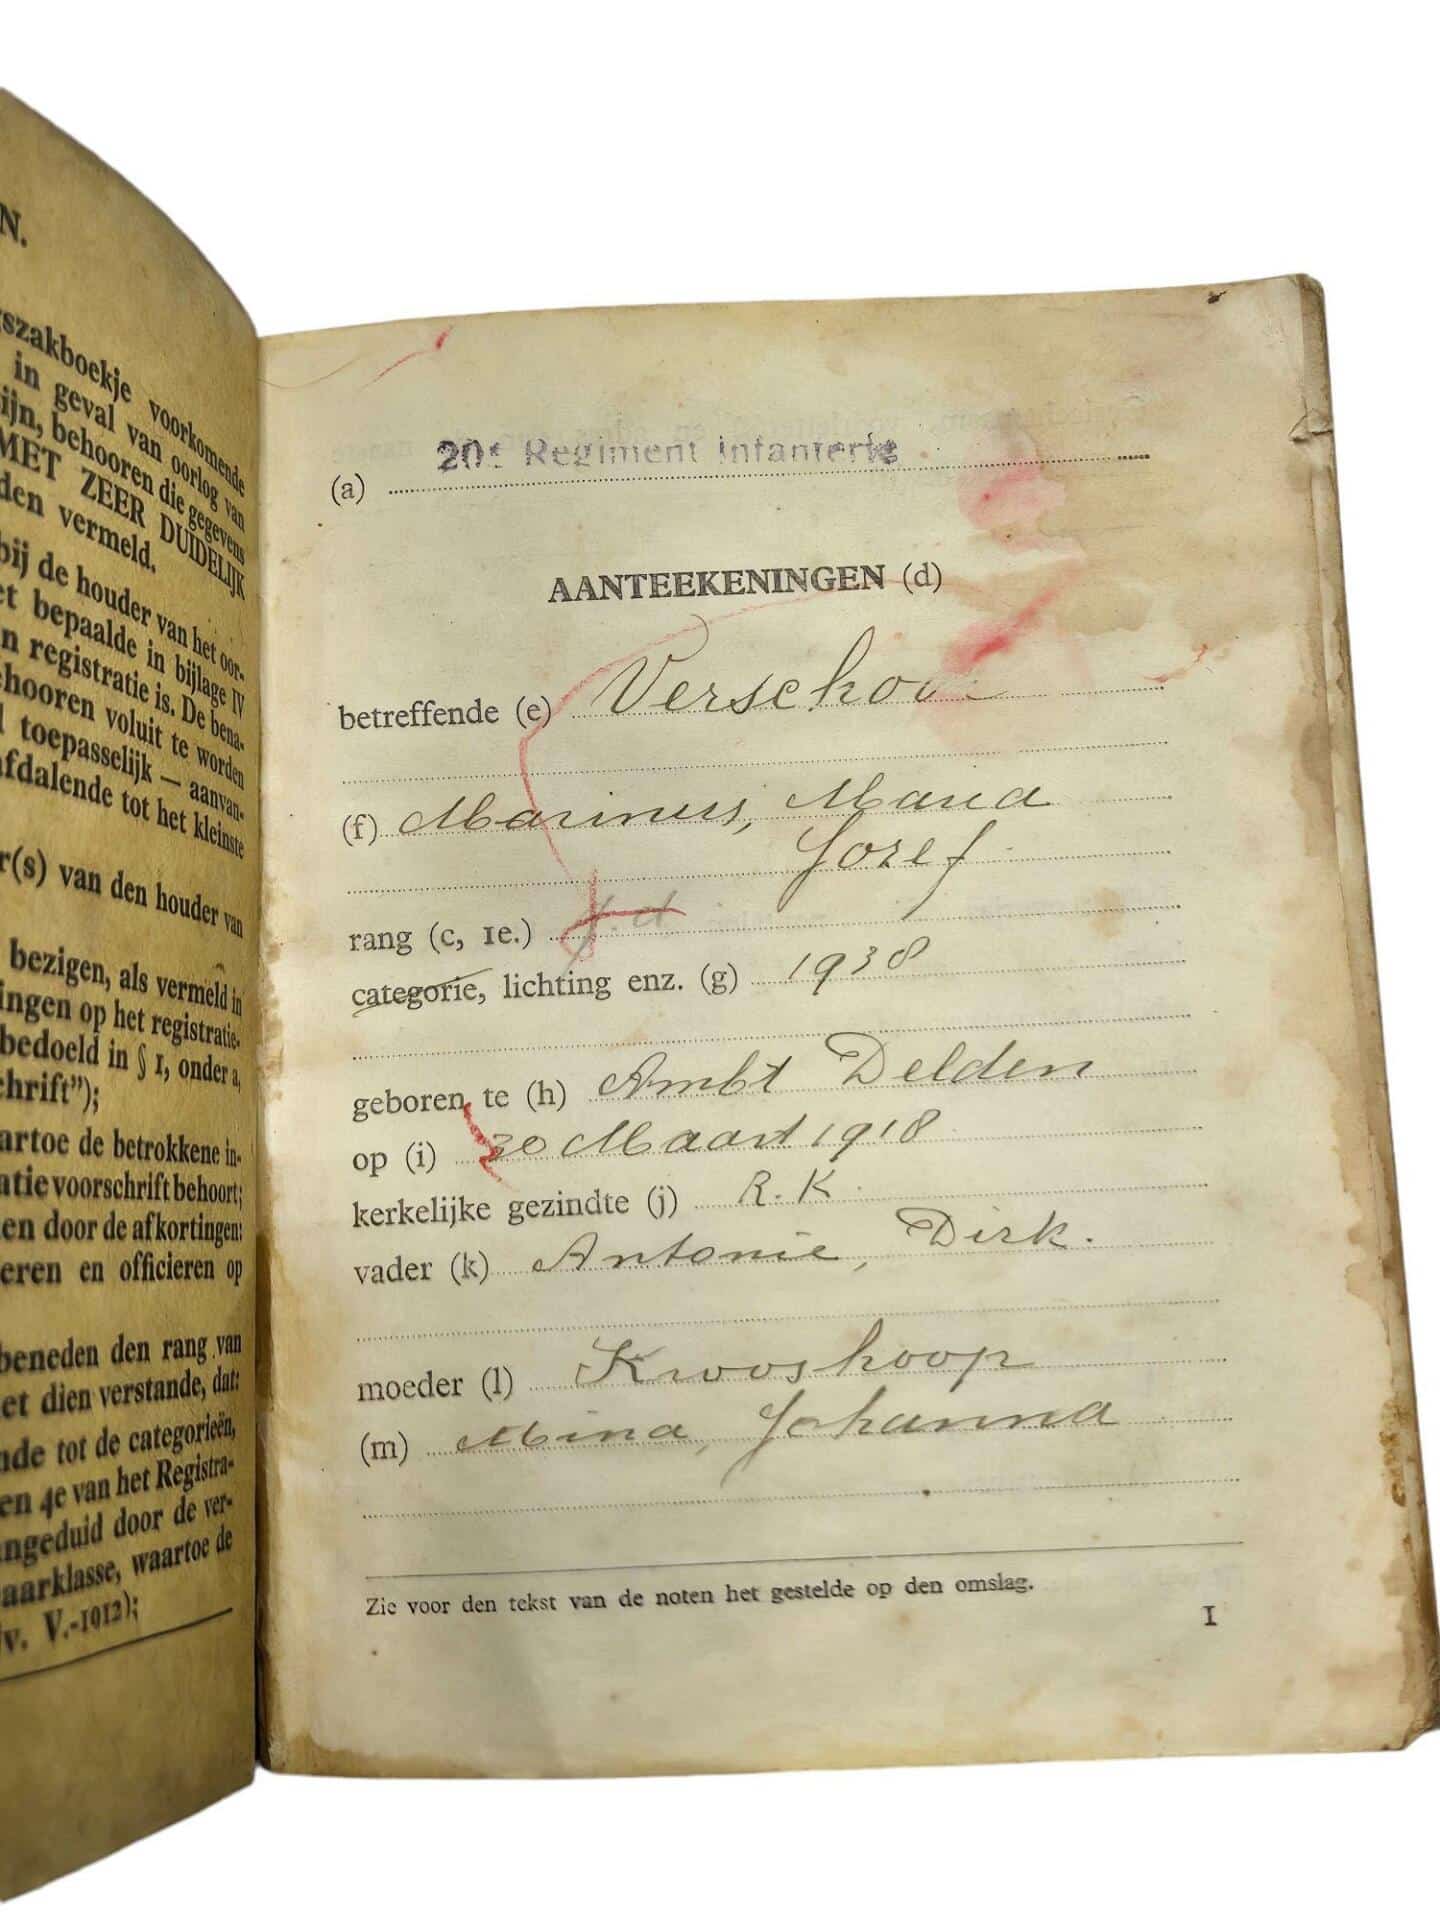 N.
gszakboekje voorkomende
in geval van oorlog van
zijn, behooren die gegevens
MET ZEER DUIDELIJK
den vermeld.
bij de houder van het oor-
et bepaalde in bijlage IV
n registratie is. De bena-
ehooren voluit te worden
l toepasselijk — aanvan-
afdalende tot het kleinste
r(s) van den houder van
bezigen, als vermeld in
ingen op het registratie-
bedoeld in § 1, onder a,
chrift");
artoe de betrokkene in-
atievoorschrift behoort;
en door de afkortingen:
eren en officieren op
beneden den rang van
et dien verstande, dat:
nde tot de categorieën,
en 4e van het Registra-
angeduid door de ver-
aarklasse, waartoe de
v. V.-1912);
(a) 20e Regiment Infanterie
AANTEEKENINGEN (d)
betreffende (e)
(f) Marinus, Maria
Jozef
rang (c, 1e.)
categorie, lichting enz. (g) 1938
geboren te (h) Ambt Delden
op (i) 30 Maart 1918
kerkelijke gezindte (j) R.K.
vader (k) Antonie, Dirk.
moeder (l) Krooshoop
(m) Mina, Johanna
Zie voor den tekst van de noten het gestelde op den omslag.
1